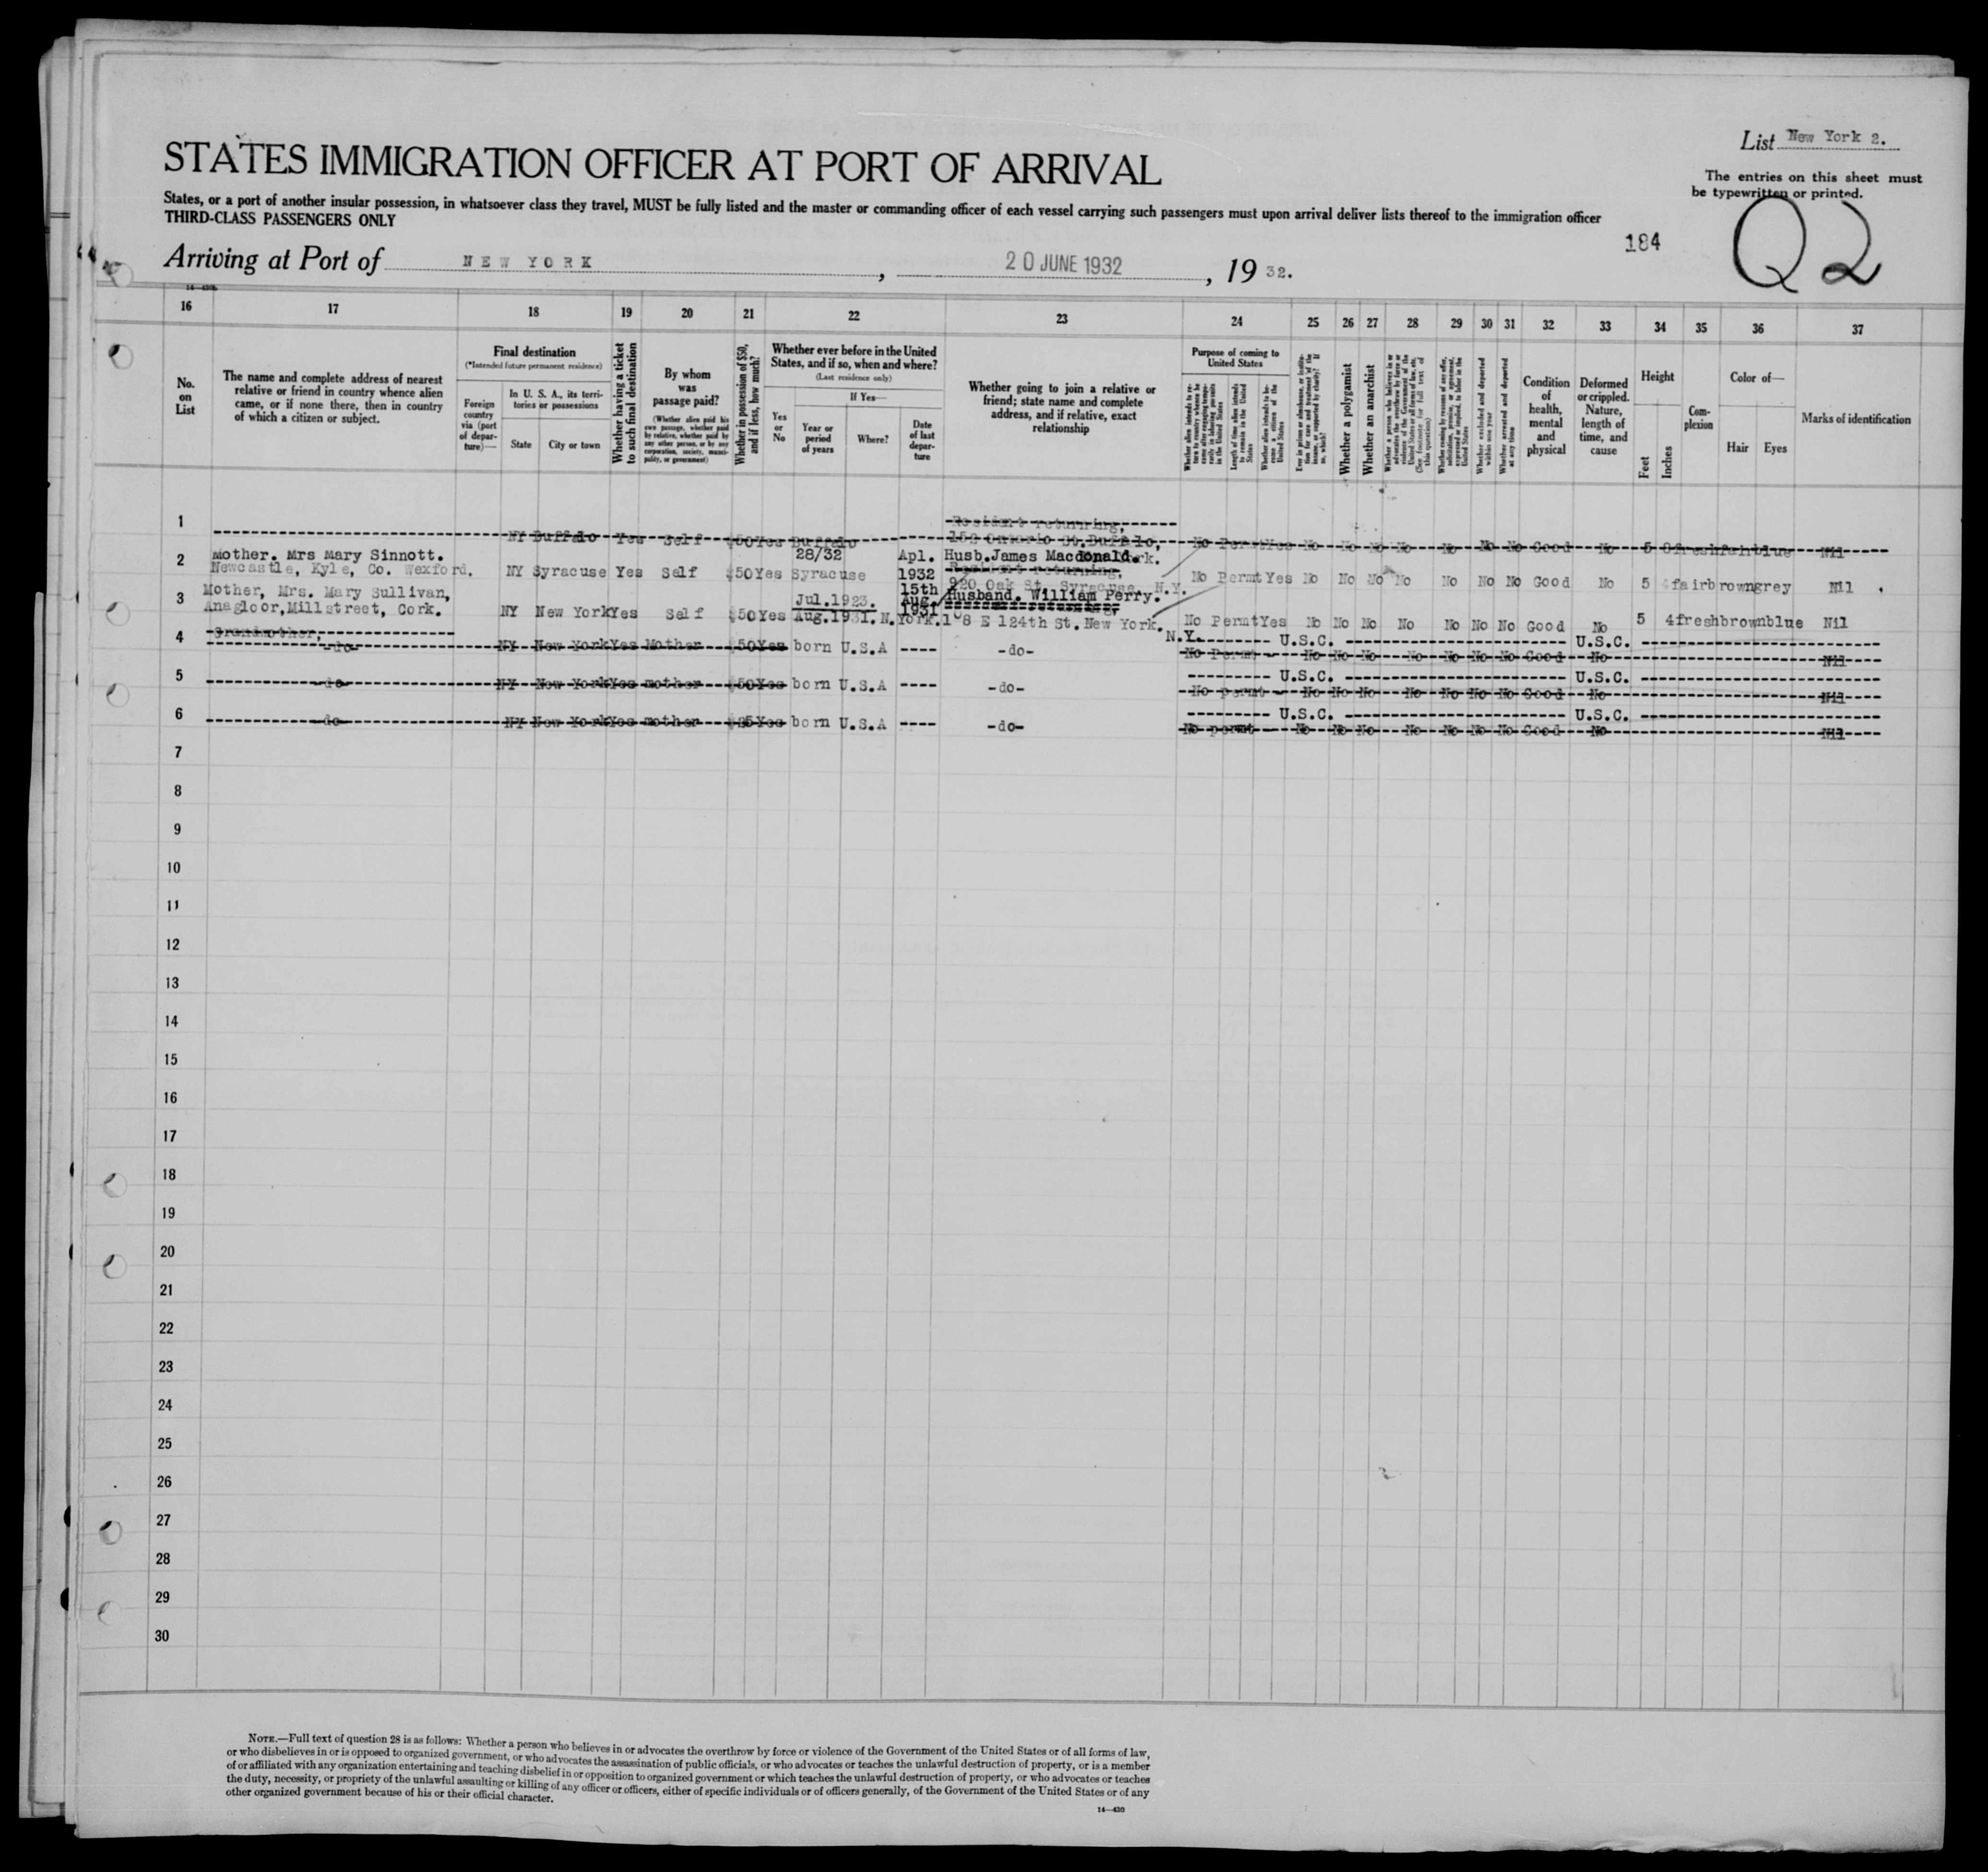 List New York 2.
STATES IMMIGRATION OFFICER AT PORT OF ARRIVAL
The entries on this sheet must
be typewritten or printed.
States, or a port of another insular possession, in whatsoever class they travel, MUST be fully listed and the master or commanding officer of each vessel carrying such passengers must upon arrival deliver lists thereof to the immigration officer
THIRD-CLASS PASSENGERS ONLY
184
Q2
Arriving at Port of NEW YORK, 20 JUNE 1932, 19 32.
16 17 18 19 20 21 22 23 24 25 26 27 28 29 30 31 32 33 34 35 36 37
No. on List
The name and complete address of nearest
relative or friend in country whence alien
came, or if none there, then in country
of which a citizen or subject.
Final destination
(*Intended future permanent residence)
Foreign country via (port of departure)—
In U. S. A., its territories or possessions
State
City or town
Whether having a ticket to such final destination
By whom was passage paid?
(Whether alien paid his own passage, whether paid by relative, whether paid by any other person, or by any corporation, society, municipality, or government)
Whether in possession of $50, and if less, how much?
Whether ever before in the United States, and if so, when and where?
(Last residence only)
Yes or No
If Yes—
Year or period of years
Where?
Date of last departure
Whether going to join a relative or
friend; state name and complete
address, and if relative, exact
relationship
Purpose of coming to United States
Whether alien intends to return to country whence he came after engaging temporarily in laboring pursuits in the United States
Length of time alien intends to remain in the United States
Whether alien intends to become a citizen of the United States
Whether a polygamist
Whether an anarchist
Whether excluded and deported within one year
Whether arrested and deported at any time
Condition of health, mental and physical
Deformed or crippled. Nature, length of time, and cause
Height
Feet
Inches
Complexion
Color of—
Hair
Eyes
Marks of identification
1 NY Buffalo Yes Self $50 Yes Buffalo Resident returning,
152 Ontario St. Buffalo, No Permt Yes No No No No No No No Good No 5 fresh blue Nil
2 Mother. Mrs Mary Sinnott. 28/32 Apl. Husb. James Macdonald.
Newcastle, Kyle, Co. Wexford. NY Syracuse Yes Self $50 Yes Syracuse 1932 Resident returning, No Permt Yes No No No No No No No Good No 5 4 fair brown grey Nil
920 Oak St. Syracuse, N.Y.
3 Mother, Mrs. Mary Sullivan, Jul.1923. 15th Aug. 1931 Husband. William Perry.
Anagloor, Millstreet, Cork. NY New York Yes Self $50 Yes Aug.1931. N.York. 108 E 124th St. New York. No Permt Yes No No No No No No No Good No 5 4 fresh brown blue Nil
4 Grandmother, N.Y. U.S.C. U.S.C.
-do- NY New York Yes Mother $50 Yes born U.S.A ---- -do- No Permt - No No No No No No No Good No Nil
5 U.S.C. U.S.C.
-do- NY New York Yes mother $50 Yes born U.S.A ---- -do- No permt - No No No No No No No Good No Nil
6 U.S.C. U.S.C.
-do- NY New York Yes mother Yes born U.S.A ---- -do- No permt - No No No No No No No Good No Nil
7
8
9
10
11
12
13
14
15
16
17
18
19
20
21
22
23
24
25
26
27
28
29
30
NOTE.—Full text of question 28 is as follows: Whether a person who believes in or advocates the overthrow by force or violence of the Government of the United States or of all forms of law,
or who disbelieves in or is opposed to organized government, or who advocates the assassination of public officials, or who advocates or teaches the unlawful destruction of property, or is a member
of or affiliated with any organization entertaining and teaching disbelief in or opposition to organized government or which teaches the unlawful destruction of property, or who advocates or teaches
the duty, necessity, or propriety of the unlawful assaulting or killing of any officer or officers, either of specific individuals or of officers generally, of the Government of the United States or of any
other organized government because of his or their official character.
14—430